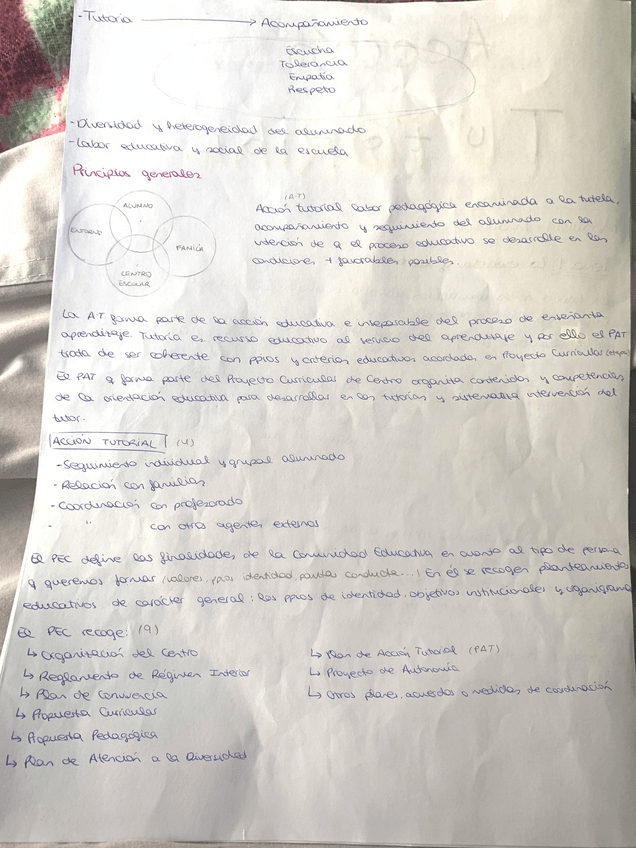 - Tutoria → Acompañamiento
Escucha
Tolerancia
Empatía
Respeto
- Diversidad y heterogeneidad del alumnado
- Labor educativa y social de la escuela
Principios generales
ALUMNO
ENTORNO
FAMILIA
CENTRO
ESCOLAR
(A.T)
Acción tutorial labor pedagógica encaminada a la tutela,
acompañamiento y seguimiento del alumnado con la
intención de q el proceso educativo se desarrolle en las
condiciones + favorables posibles.
La A.T forma parte de la acción educativa e inseparable del proceso de enseñanza
aprendizaje. Tutoría es recurso educativo al servicio del aprendizaje y por ello el PAT
trata de ser coherente con ppios y criterios educativos acordados en Proyecto Curricular
El PAT q forma parte del Proyecto Curricular de Centro organiza contenidos y competencias
de la orientación educativa para desarrollar en las tutorías y sistematiza intervención del
tutor.
ACCIÓN TUTORIAL (4)
- Seguimiento individual y grupal alumnado
- Relación con familias
- Coordinación con profesorado
- " con otros agentes externos
El PEC define las finalidades de la Comunidad Educativa en cuanto al tipo de persona
q queremos formar (valores, ppios identidad, pautas conducta...) En él se recogen planteamientos
educativos de carácter general: los ppios de identidad, objetivos institucionales y organigrama
El PEC recoge: (9)
↳ Organización del Centro
↳ Reglamento de Régimen Interior
↳ Plan de Convivencia
↳ Propuesta Curricular
↳ Propuesta Pedagógica
↳ Plan de Atención a la Diversidad
↳ Plan de Acción Tutorial (PAT)
↳ Proyecto de Autonomía
↳ Otros planes, acuerdos o medidas de coordinación